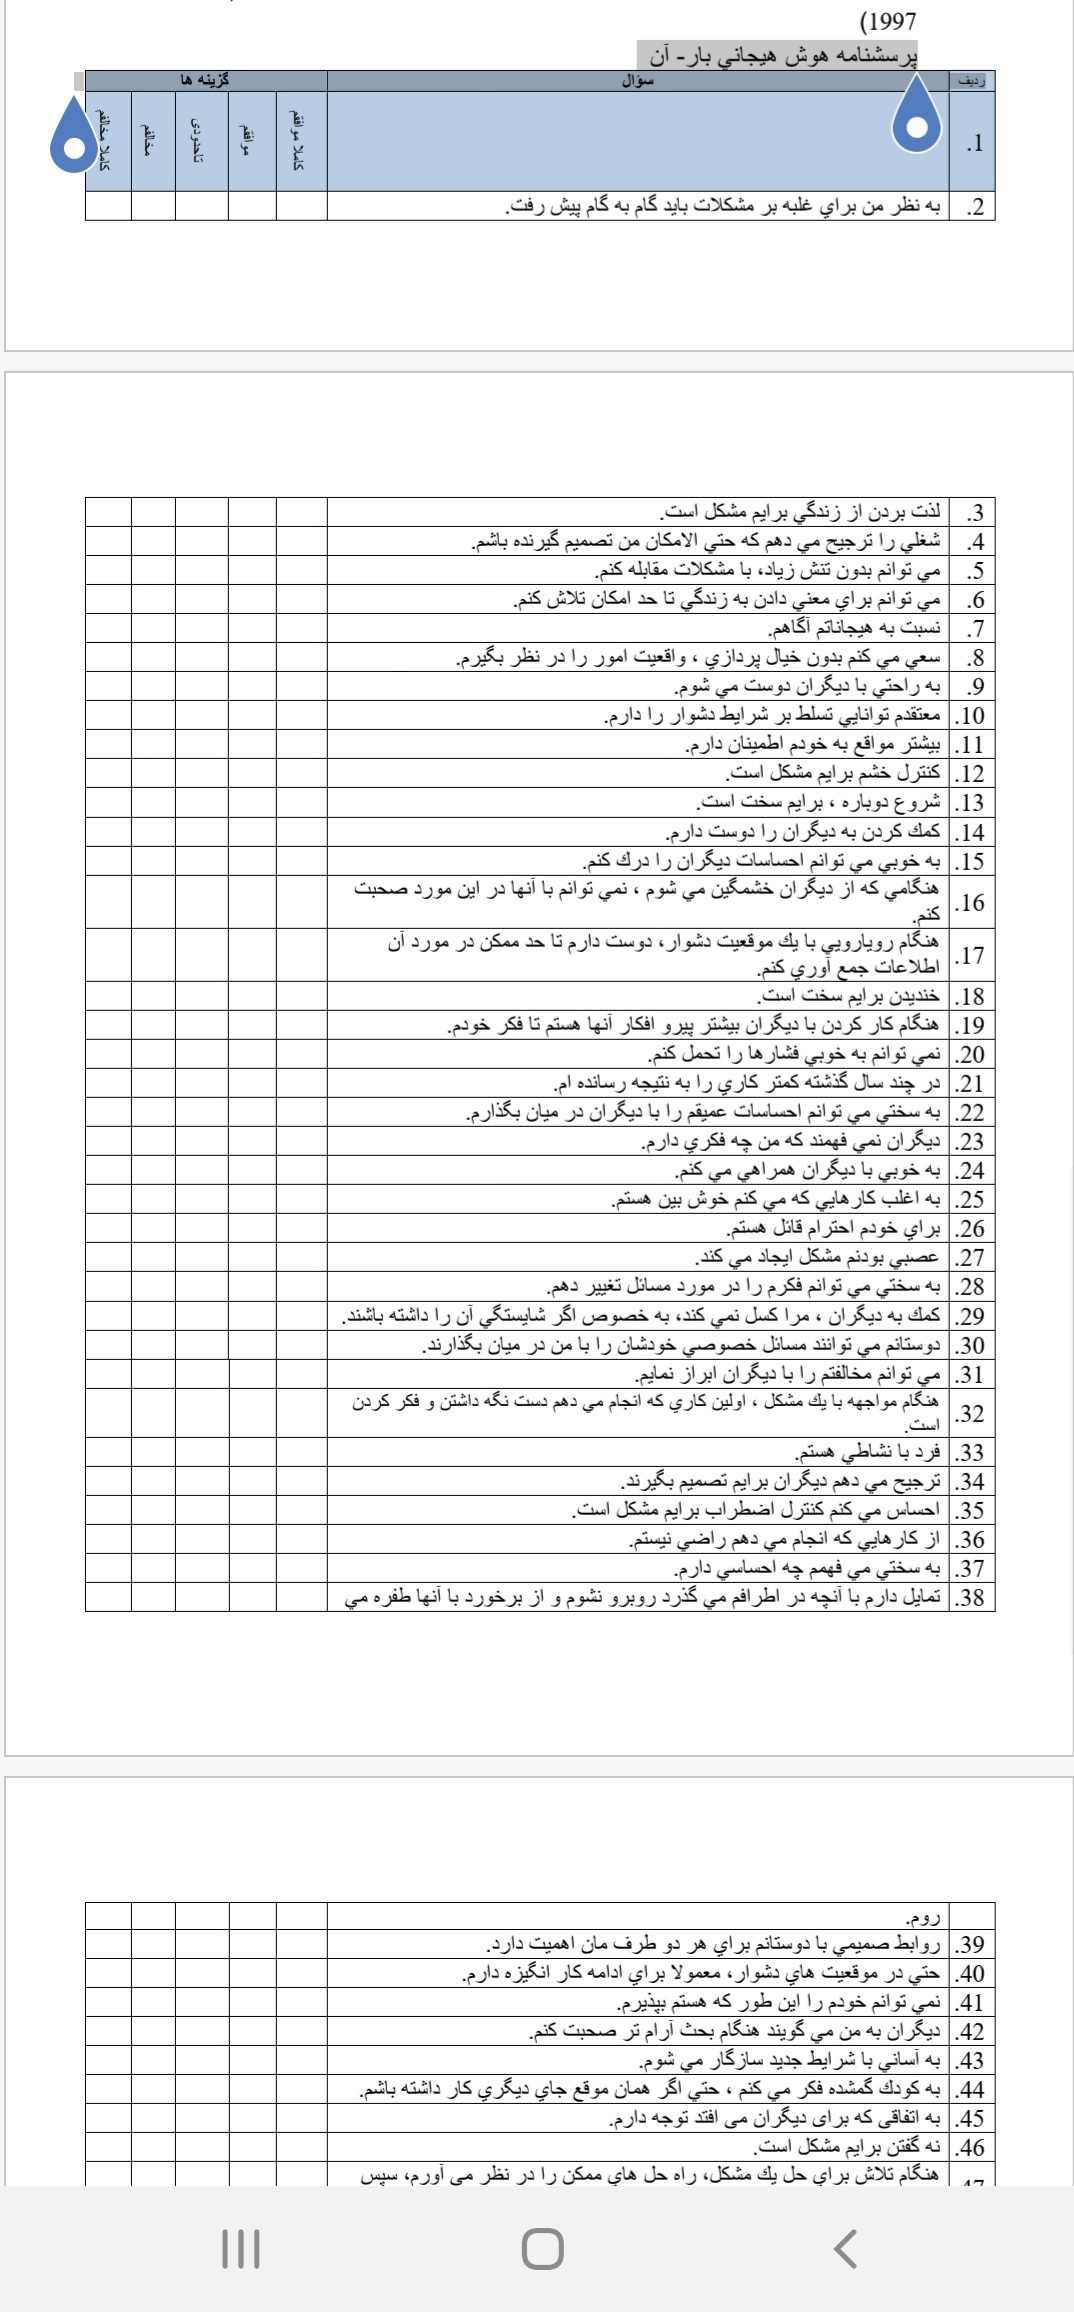 1997)
پرسشنامه هوش هيجاني بار- آن
رديف سؤال گزينه ها
1. كاملا موافقم موافقم تاحدودی مخالفم كاملا مخالفم
2. به نظر من براي غلبه بر مشكلات بايد گام به گام پيش رفت.
3. لذت بردن از زندگي برايم مشكل است.
4. شغلي را ترجيح مي دهم كه حتي الامكان من تصميم گيرنده باشم.
5. مي توانم بدون تنش زياد، با مشكلات مقابله كنم.
6. مي توانم براي معني دادن به زندگي تا حد امكان تلاش كنم.
7. نسبت به هيجاناتم آگاهم.
8. سعي مي كنم بدون خيال پردازي ، واقعيت امور را در نظر بگيرم.
9. به راحتي با ديگران دوست مي شوم.
10. معتقدم توانايي تسلط بر شرايط دشوار را دارم.
11. بيشتر مواقع به خودم اطمينان دارم.
12. كنترل خشم برايم مشكل است.
13. شروع دوباره ، برايم سخت است.
14. كمك كردن به ديگران را دوست دارم.
15. به خوبي مي توانم احساسات ديگران را درك كنم.
16. هنگامي كه از ديگران خشمگين مي شوم ، نمي توانم با آنها در اين مورد صحبت
كنم.
17. هنگام رويارويي با يك موقعيت دشوار، دوست دارم تا حد ممكن در مورد آن
اطلاعات جمع آوري كنم.
18. خنديدن برايم سخت است.
19. هنگام كار كردن با ديگران بيشتر پيرو افكار آنها هستم تا فكر خودم.
20. نمي توانم به خوبي فشارها را تحمل كنم.
21. در چند سال گذشته كمتر كاري را به نتيجه رسانده ام.
22. به سختي مي توانم احساسات عميقم را با ديگران در ميان بگذارم.
23. ديگران نمي فهمند كه من چه فكري دارم.
24. به خوبي با ديگران همراهي مي كنم.
25. به اغلب كارهايي كه مي كنم خوش بين هستم.
26. براي خودم احترام قائل هستم.
27. عصبي بودنم مشكل ايجاد مي كند.
28. به سختي مي توانم فكرم را در مورد مسائل تغيير دهم.
29. كمك به ديگران ، مرا كسل نمي كند، به خصوص اگر شايستگي آن را داشته باشند.
30. دوستانم مي توانند مسائل خصوصي خودشان را با من در ميان بگذارند.
31. مي توانم مخالفتم را با ديگران ابراز نمايم.
32. هنگام مواجهه با يك مشكل ، اولين كاري كه انجام مي دهم دست نگه داشتن و فكر كردن
است.
33. فرد با نشاطي هستم.
34. ترجيح مي دهم ديگران برايم تصميم بگيرند.
35. احساس مي كنم كنترل اضطراب برايم مشكل است.
36. از كارهايي كه انجام مي دهم راضي نيستم.
37. به سختي مي فهمم چه احساسي دارم.
38. تمايل دارم با آنچه در اطرافم مي گذرد روبرو نشوم و از برخورد با آنها طفره مي
روم.
39. روابط صميمي با دوستانم براي هر دو طرف مان اهميت دارد.
40. حتي در موقعيت هاي دشوار، معمولا براي ادامه كار انگيزه دارم.
41. نمي توانم خودم را اين طور كه هستم بپذيرم.
42. ديگران به من مي گويند هنگام بحث آرام تر صحبت كنم.
43. به آساني با شرايط جديد سازگار مي شوم.
44. به كودك گمشده فكر مي كنم ، حتي اگر همان موقع جاي ديگري كار داشته باشم.
45. به اتفاقی که برای دیگران می افتد توجه دارم.
46. نه گفتن برايم مشكل است.
47. هنگام تلاش براي حل يك مشكل، راه حل هاي ممكن را در نظر مي آورم، سپس